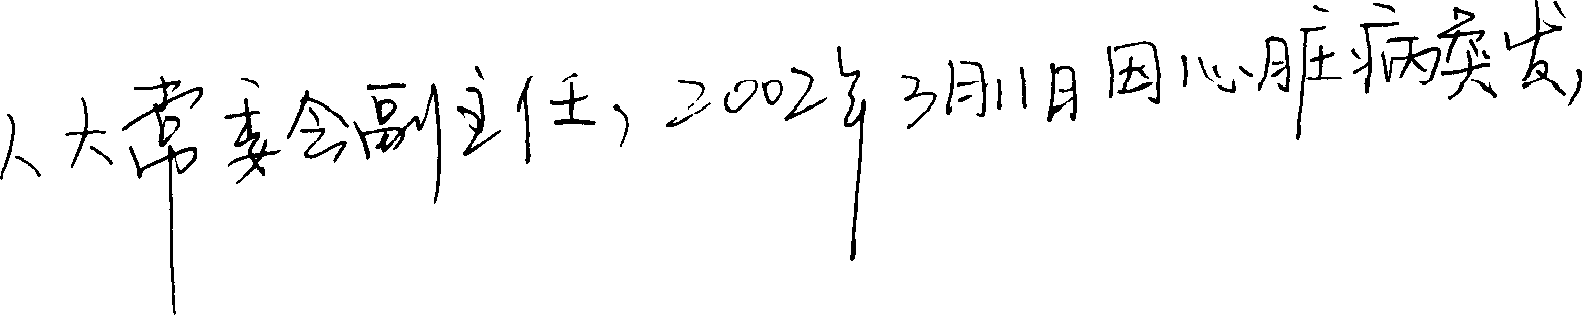 人大常委会副主任，2002年3月11日因心脏病突发，